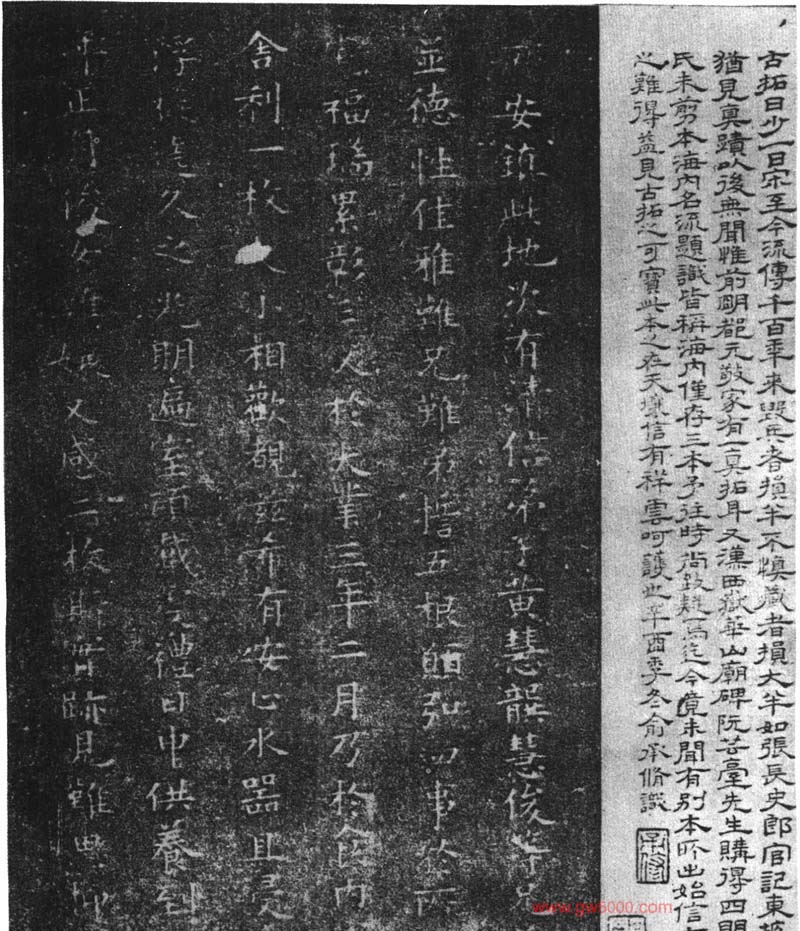 古拓日少一日宋至今流傳千百年來毀兵者損半不慎藏者損大半如張長史郎官記東坡
猶見真蹟以後無聞惟前明都元敬家有一真拓耳又漢西嶽華山廟碑阮芸臺先生購得四明
氏未剪本海內名流題識皆稱海內僅存三本予往時尚致疑焉迄今竟未聞有別本所出始信
之難得益見古拓之可寶此本之在天壤信有祥雲呵護也辛酉季冬俞承脩識
安鎮此地次有清信弟子黃慧龍慧俊等兄
並德性佳雅難兄難弟憺五根皕弘四事於
福瑞累彰三人於大業三年二月乃於食內
舍利一枚大小相歡覩茲希有安心水器且
浮後乃久之光明遍室頂戴受禮日申供養到
年正月俊女難娘又感一枚斯皆跡見雖
www.gw5000.com